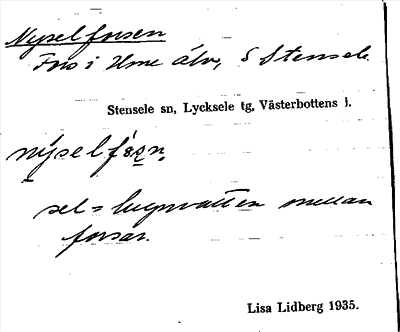 Nyselforsen
Fors i Ume älv, S Stensele.
Stensele sn, Lycksele tg, Västerbottens l.
sel = lugnvatten mellan
forsar.
Lisa Lidberg 1935.